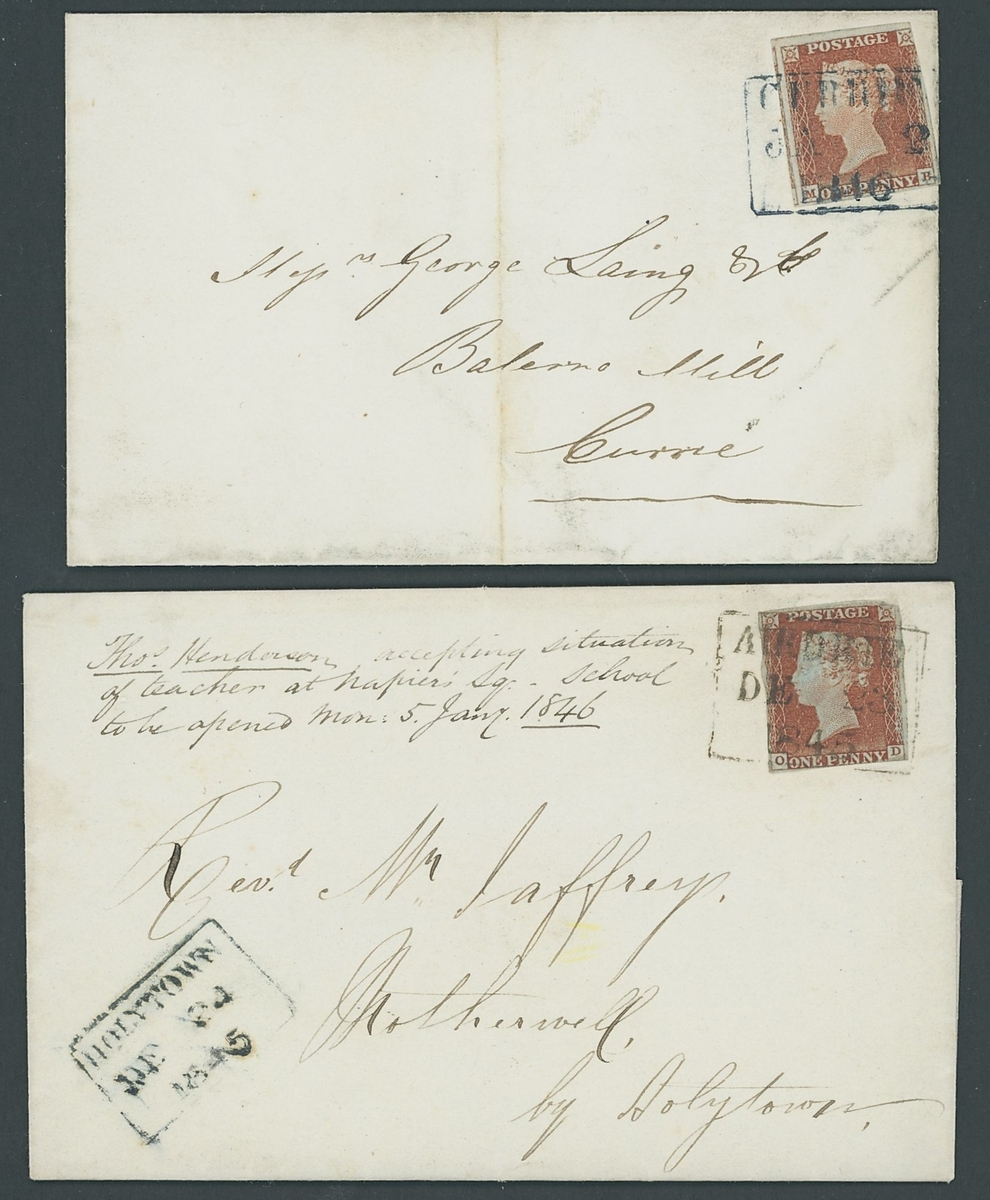 POSTAGE
CURRIE
2
ONE PENNY
Messrs George Laing & Co
Balerno Mill
Currie
Thos. Henderson, accepting situation
of teacher at Napier's Sq. - School
to be opened Mon: 5. Jany. 1846
POSTAGE
AIRDRIE
DE 23
1845
O ONE PENNY D
Revd. Mr Jaffrey.
Motherwell,
by Holytown,
HOLYTOWN
DE 24
1845